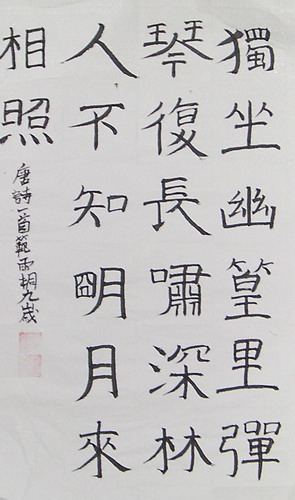 獨坐幽篁里彈
琴復長嘯深林
人不知明月來
相照
唐詩一首範雨桐九歲